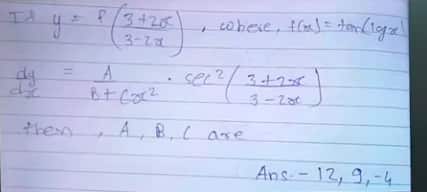 If y = f(3+2x / 3-2x), where, f(x) = tan(log x)
dy/dx = A / B+Cx² . sec²(3+2x / 3-2x)
then, A, B, C are
Ans - 12, 9, -4